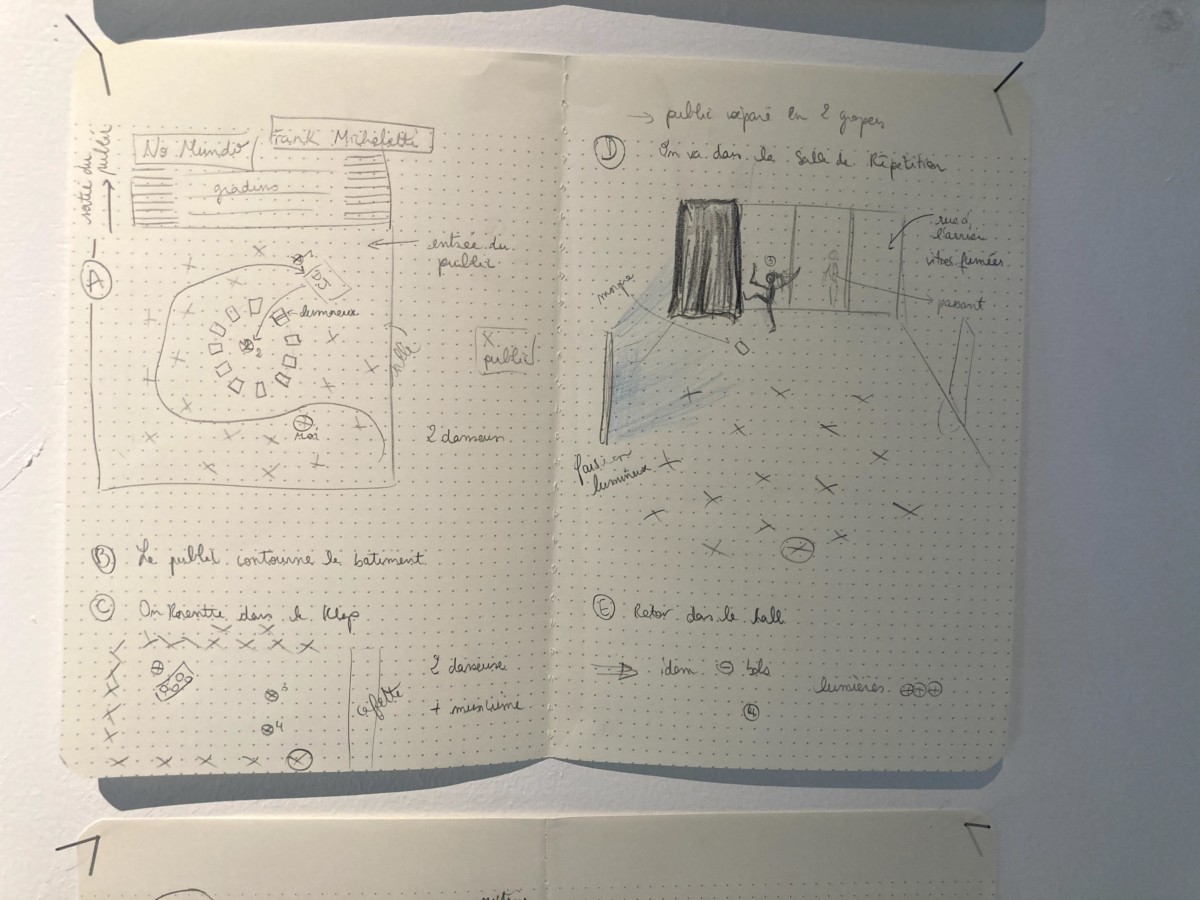 No Mundo
Frank Micheletti
sortie du
public
gradins
entrée du
public
A
DJ
lumineux
2
X
public
moi
2 danseurs
B Le public contourne le batiment
C On Rentre dans le Klap
3
4
2 danseuse
+ musicienne
→ public séparé en 2 groupes
D On va dans la Salle de Répetition
rue à
l'arrière
vitres fumées
passant
3
lumineux
E Retour dans le hall
idem
lumières
4